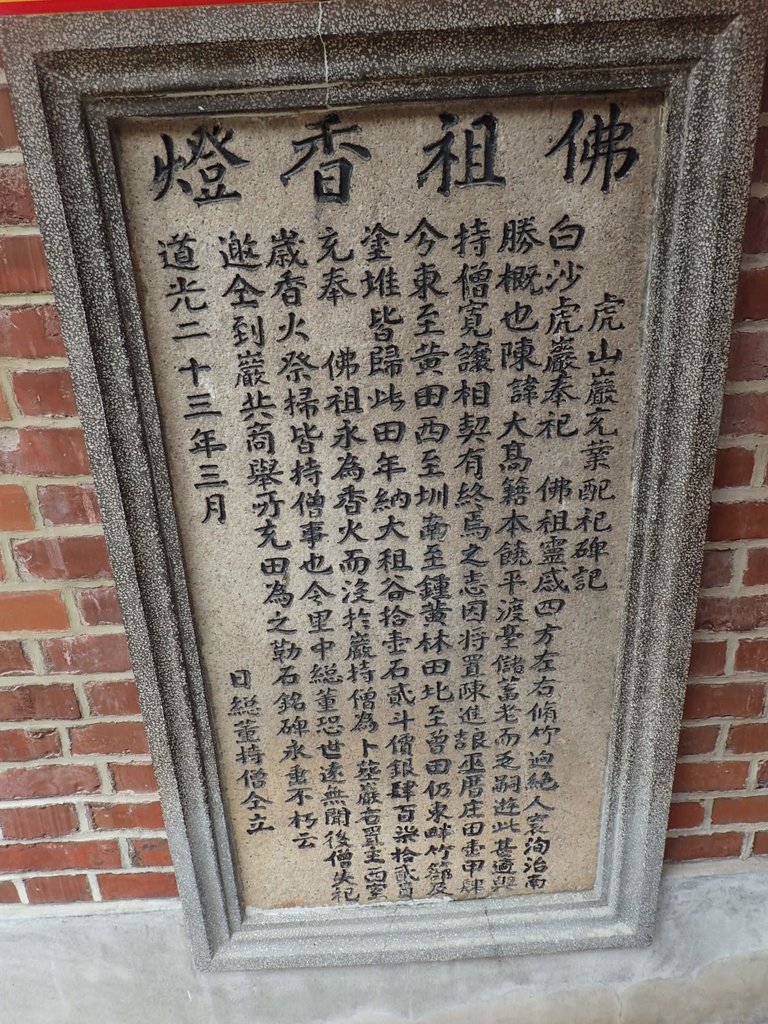 佛祖香燈
虎山巖充業配祀碑記
白沙虎巖奉祀　佛祖靈感四方左右脩竹迥絕人寰洵治南
勝概也陳諱大高籍本饒平渡臺儲蓄老而乏嗣遊此甚適與
持僧寬讓相契有終焉之志因將置陳進諒巫厝庄田壹甲肆
分東至黃田西至圳南至鍾黃林田北至曾田仍東畔竹節及
塗堆皆歸此田年納大租谷拾壹石貳斗價銀肆百柒拾貳員
充奉　佛祖永為香火而沒於巖持僧為卜葬巖右買主西室
歲香火祭掃皆持僧事也今里中總董恐世遠無聞後僧失祀
邀仝到巖共商舉所充田為之勒石銘碑永垂不朽云
道光二十三年三月　日總董持僧仝立